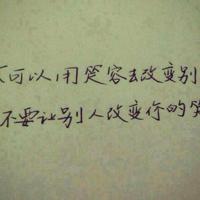 可以用笑容去改变别
不要让别人改变你的笑